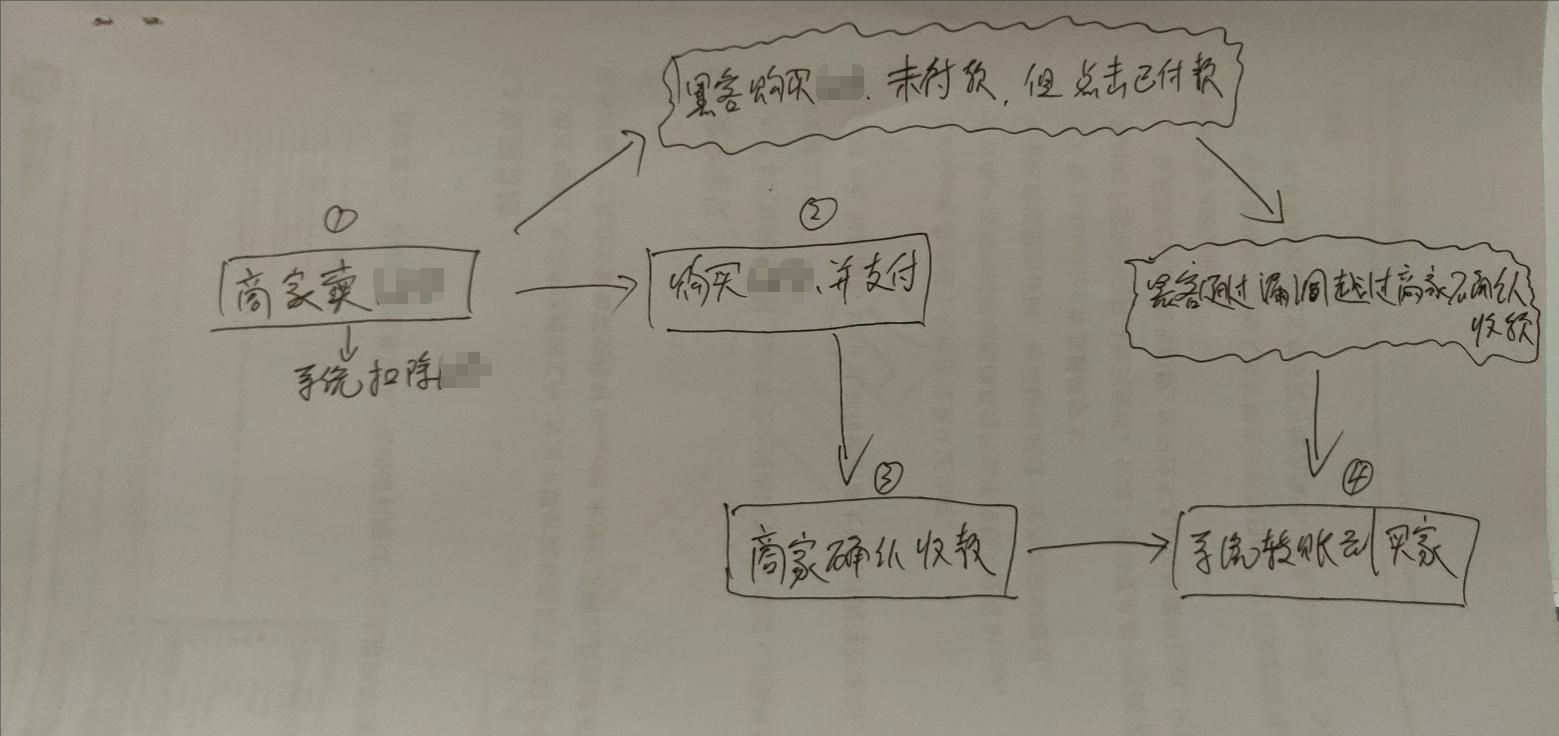 黑客购买 、未付款，但点击已付款
①
商家卖
系统扣除
②
购买 、并支付
黑客通过漏洞越过商家不确认
收款
③
商家确认收款
④
系统转账到买家